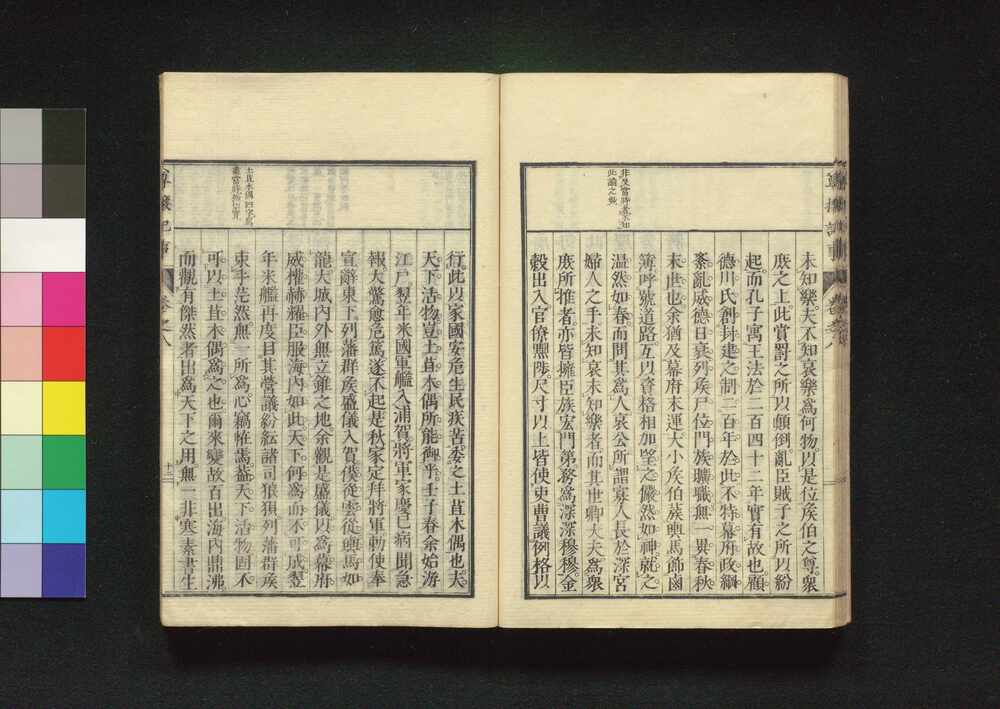 非生當時者不知
此論之妙
未知樂夫不知哀樂爲何物以是位侯伯之尊衆
庶之上此賞罸之所以顛倒亂臣賊子之所以紛
起而孔子寓王法於二百四十二年實有故也顧
德川氏創封建之制二百年於此不特幕府政綱
紊亂威德日衰列侯尸位門族曠職無一異春秋
末世也余猶及幕府末運大小侯伯族輿馬飾鹵
簿呼號道路互以資格相加望之儼然如神就之
温然如春而問其爲人哀公所謂寡人長於深宮
婦人之手未知哀未知樂者而其世卿大夫爲衆
庶所推者亦皆擁臣族宏門第務爲深深穆穆金
穀出入官僚黜陟尺寸以上皆使吏曹議例格以
土苴木偶四字爲
行此以家國安危生民疾苦委之土苴木偶也夫
天下活物豈土苴木偶所能御乎壬子春余始游
江戸翌年米國軍艦入浦賀將軍家慶已病聞急
報大驚愈危篤遂不起是秋家定拜將軍勅使奉
宣辭東下列藩群侯盛儀入賀僕從雲從輿馬如
龍大城内外無立錐之地余觀是盛儀以爲幕府
威權赫耀臣服海内如此天下何爲而不可成翌
年米艦再度目其營議紛紜諸司狼狽列藩群侯
束手茫然無一所爲心竊恠焉葢天下活物固不
可以土苴木偶爲之也爾來變故百出海内鼎沸
而觀有傑然者出爲天下之用無一非寒素書生
尊攘紀事
卷之八
十二